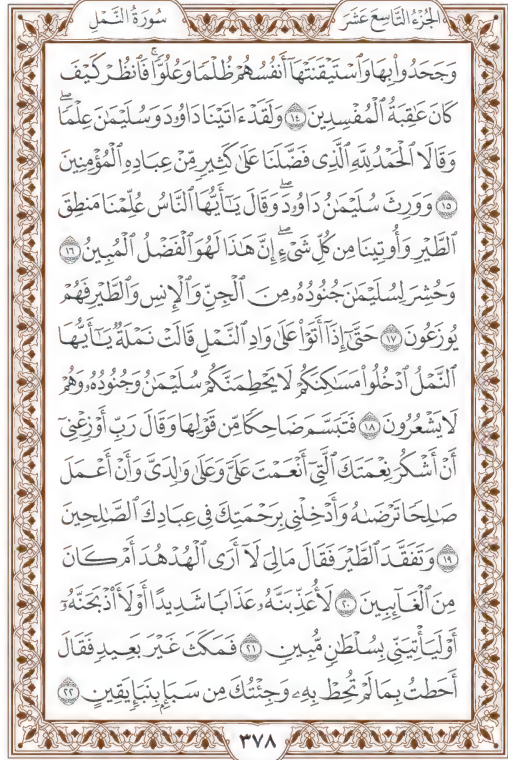 الجزء التاسع عشر
سورة النمل
وَجَحَدُوا۟ بِهَا وَٱسْتَيْقَنَتْهَآ أَنفُسُهُمْ ظُلْمًا وَعُلُوًّا ۚ فَٱنظُرْ كَيْفَ
كَانَ عَـٰقِبَةُ ٱلْمُفْسِدِينَ ١٤ وَلَقَدْ ءَاتَيْنَا دَاوُۥدَ وَسُلَيْمَـٰنَ عِلْمًا ۖ
وَقَالَا ٱلْحَمْدُ لِلَّهِ ٱلَّذِى فَضَّلَنَا عَلَىٰ كَثِيرٍ مِّنْ عِبَادِهِ ٱلْمُؤْمِنِينَ
١٥ وَوَرِثَ سُلَيْمَـٰنُ دَاوُۥدَ ۖ وَقَالَ يَـٰٓأَيُّهَا ٱلنَّاسُ عُلِّمْنَا مَنطِقَ
ٱلطَّيْرِ وَأُوتِينَا مِن كُلِّ شَىْءٍ ۖ إِنَّ هَـٰذَا لَهُوَ ٱلْفَضْلُ ٱلْمُبِينُ ١٦
وَحُشِرَ لِسُلَيْمَـٰنَ جُنُودُهُۥ مِنَ ٱلْجِنِّ وَٱلْإِنسِ وَٱلطَّيْرِ فَهُمْ
يُوزَعُونَ ١٧ حَتَّىٰٓ إِذَآ أَتَوْا۟ عَلَىٰ وَادِ ٱلنَّمْلِ قَالَتْ نَمْلَةٌ يَـٰٓأَيُّهَا
ٱلنَّمْلُ ٱدْخُلُوا۟ مَسَـٰكِنَكُمْ لَا يَحْطِمَنَّكُمْ سُلَيْمَـٰنُ وَجُنُودُهُۥ وَهُمْ
لَا يَشْعُرُونَ ١٨ فَتَبَسَّمَ ضَاحِكًا مِّن قَوْلِهَا وَقَالَ رَبِّ أَوْزِعْنِىٓ
أَنْ أَشْكُرَ نِعْمَتَكَ ٱلَّتِىٓ أَنْعَمْتَ عَلَىَّ وَعَلَىٰ وَٰلِدَىَّ وَأَنْ أَعْمَلَ
صَـٰلِحًا تَرْضَىٰهُ وَأَدْخِلْنِى بِرَحْمَتِكَ فِى عِبَادِكَ ٱلصَّـٰلِحِينَ
١٩ وَتَفَقَّدَ ٱلطَّيْرَ فَقَالَ مَالِىَ لَآ أَرَى ٱلْهُدْهُدَ أَمْ كَانَ
مِنَ ٱلْغَآئِبِينَ ٢٠ لَأُعَذِّبَنَّهُۥ عَذَابًا شَدِيدًا أَوْ لَأَا۟ذْبَحَنَّهُۥٓ
أَوْ لَيَأْتِيَنِّى بِسُلْطَـٰنٍ مُّبِينٍ ٢١ فَمَكَثَ غَيْرَ بَعِيدٍ فَقَالَ
أَحَطتُ بِمَا لَمْ تُحِطْ بِهِۦ وَجِئْتُكَ مِن سَبَإٍۭ بِنَبَإٍ يَقِينٍ ٢٢
٣٧٨